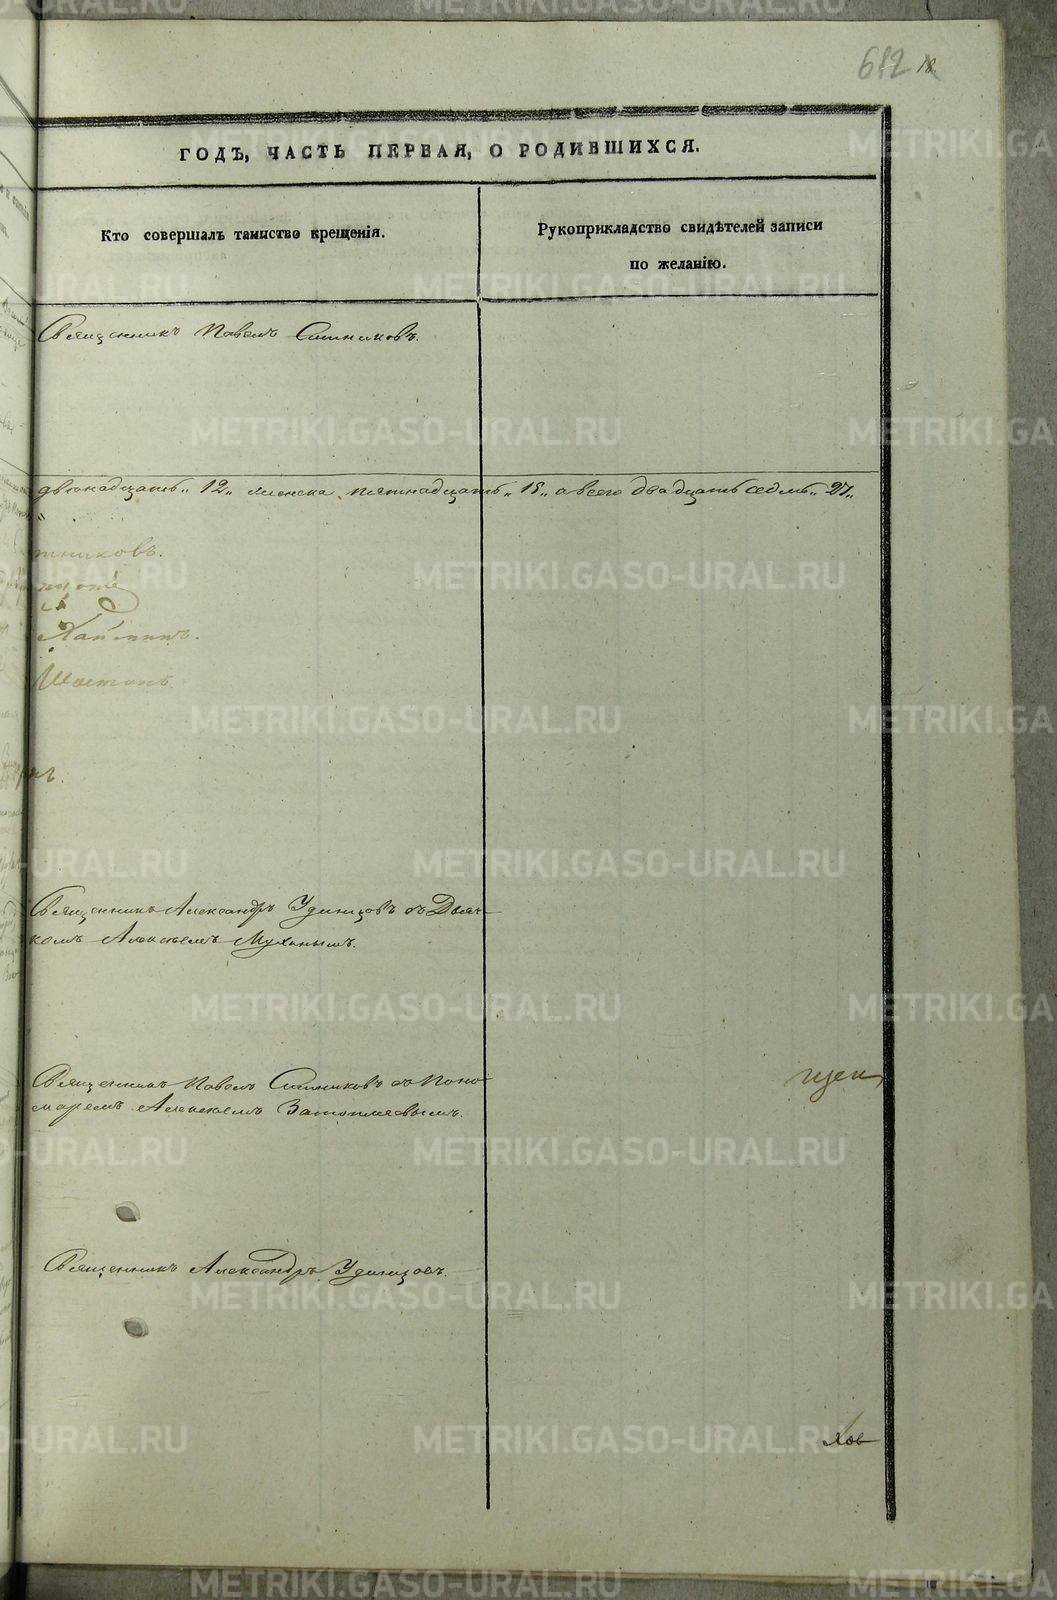 612 18.
ГОДЪ, ЧАСТЬ ПЕРВАЯ, О РОДИВШИХСЯ.
Кто совершалъ таинство крещенія.
Рукоприкладство свидѣтелей записи
по желанію.
Священникъ Павелъ Ситниковъ.
двѣнадцать „12„ женска пятнадцать „15„ а всего двадцать седмь „27„
тниковъ.
Священникъ Александръ Удинцовъ съ Дьяч-
комъ Алексѣемъ
Священникъ Павелъ Ситниковъ съ Поно-
маремъ Алексѣемъ
Священникъ Александръ Удинцовъ.
METRIKI.GASO-URAL.RU